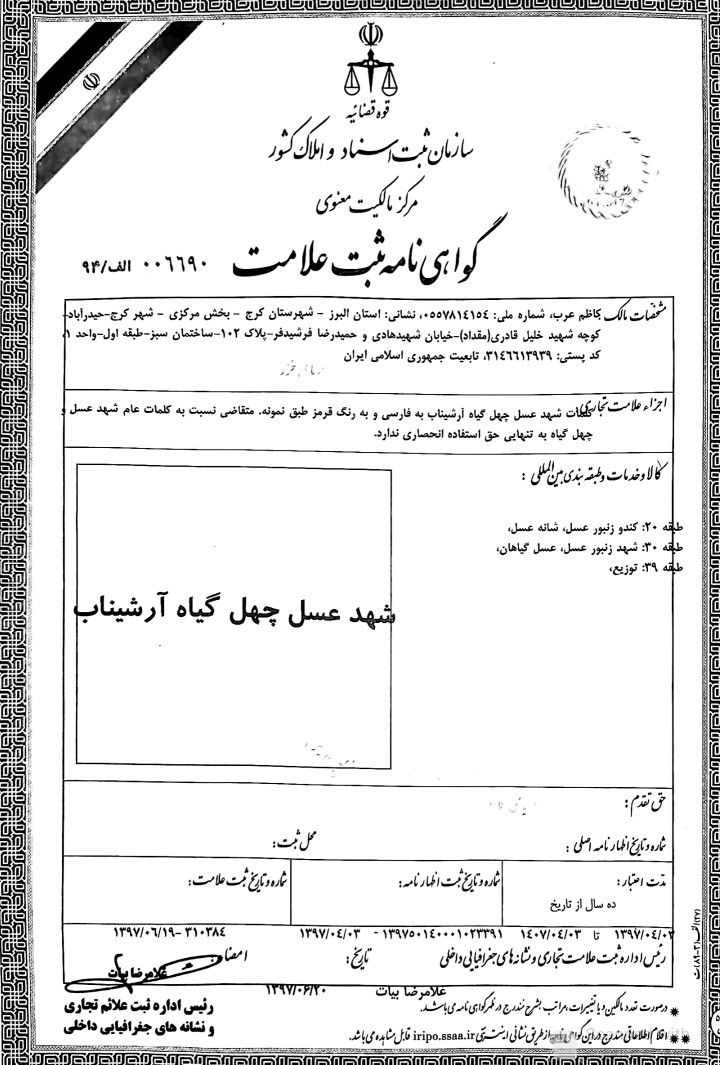 قوه قضائیه
سازمان ثبت اسناد و املاک کشور
مرکز مالکیت معنوی
گواهی نامه ثبت علامت
۰۰۶۶۹۰ الف/۹۴
مشخصات مالک: کاظم عرب، شماره ملی: ۰۵۵۷۸۱۴۱۵۴، نشانی: استان البرز - شهرستان کرج - بخش مرکزی - شهر کرج-حیدرآباد-
کوچه شهید خلیل قادری(مقداد)-خیابان شهیدهادی و حمیدرضا فرشیدفر-پلاک ۱۰۲-ساختمان سبز-طبقه اول-واحد ۱،
کد پستی: ۳۱۴۶۶۱۳۹۳۹، تابعیت جمهوری اسلامی ایران
اجزاء علامت تجاری: کلمات شهد عسل چهل گیاه آرشیناب به فارسی و به رنگ قرمز طبق نمونه. متقاضی نسبت به کلمات عام شهد عسل و
چهل گیاه به تنهایی حق استفاده انحصاری ندارد.
کالا و خدمات و طبقه بندی بین المللی :
طبقه ۲۰: کندو زنبور عسل، شانه عسل،
طبقه ۳۰: شهد زنبور عسل، عسل گیاهان،
طبقه ۳۹: توزیع،
شهد عسل چهل گیاه آرشیناب
حق تقدم:
شماره و تاریخ اظهار نامه اصلی :
محل ثبت:
مدت اعتبار:
ده سال از تاریخ
۱۳۹۷/۰۴/۰۳ تا ۱۴۰۷/۰۴/۰۳
شماره و تاریخ ثبت اظهار نامه:
۱۳۹۷۵۰۱۴۰۰۰۱۰۲۳۳۹۱ - ۱۳۹۷/۰۴/۰۳
شماره و تاریخ ثبت علامت:
۳۱۰۳۸۴ -۱۳۹۷/۰۶/۱۹
رئیس اداره ثبت علامت تجاری و نشانه های جغرافیایی داخلی
تاریخ:
امضاء
غلامرضا بیات
غلامرضا بیات
۱۳۹۷/۰۶/۲۰
رئیس اداره ثبت علائم تجاری
و نشانه های جغرافیایی داخلی
* درصورت تعدد مالکین و یا تغییرات، مراتب بشرح مندرج در ظهر گواهی نامه می باشد.
** اقلام اطلاعاتی مندرج در این گواهی از طریق نشانی اینترنتی iripo.ssaa.ir قابل مشاهده می باشد.